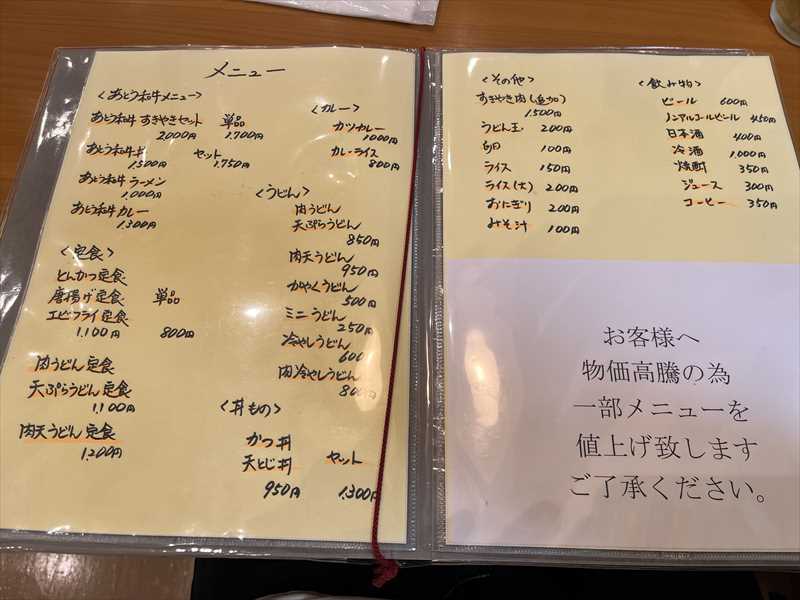 メニュー
<あとう和牛メニュー>
あとう和牛 すきやきセット 単品
2000円 1.700円
あとう和牛丼 セット
1.500円 1.750円
あとう和牛 ラーメン
1.000円
あとう和牛 カレー
1.300円
<定食>
とんかつ定食
唐揚げ定食 単品
エビフライ定食
1.100円 800円
肉うどん定食
天ぷらうどん定食
1.100円
肉天うどん定食
1.200円
<カレー>
カツカレー
1000円
カレーライス
800円
<うどん>
肉うどん
天ぷらうどん
850円
肉天うどん
950円
かやくうどん
500円
ミニうどん
250円
冷やしうどん
600
肉冷やしうどん
800円
<丼もの>
かつ丼
天とじ丼 セット
950円 1.300円
<その他>
すきやき肉(追加)
1.500円
うどん玉 200円
卵 100円
ライス 150円
ライス(大) 200円
おにぎり 200円
みそ汁 100円
<飲み物>
ビール 600円
ノンアルコールビール 450円
日本酒 400円
冷酒 1.000円
焼酎 350円
ジュース 300円
コーヒー 350円
お客様へ
物価高騰の為
一部メニューを
値上げ致します
ご了承ください。